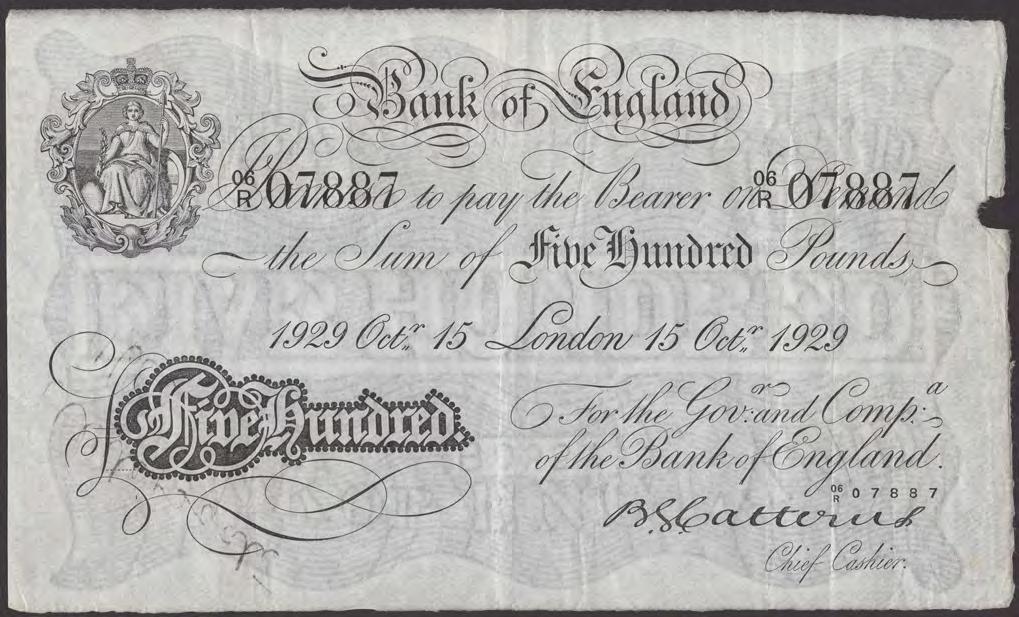 Bank of England
I Promise to pay the Bearer on Demand
06/R 07887 06/R 07887
the Sum of Five Hundred Pounds
1929 Octr. 15 London 15 Octr. 1929
£ Five Hundred.
For the Govr. and Compa.
of the Bank of England.
06/R 07887
B.G. Catterns
Chief Cashier.